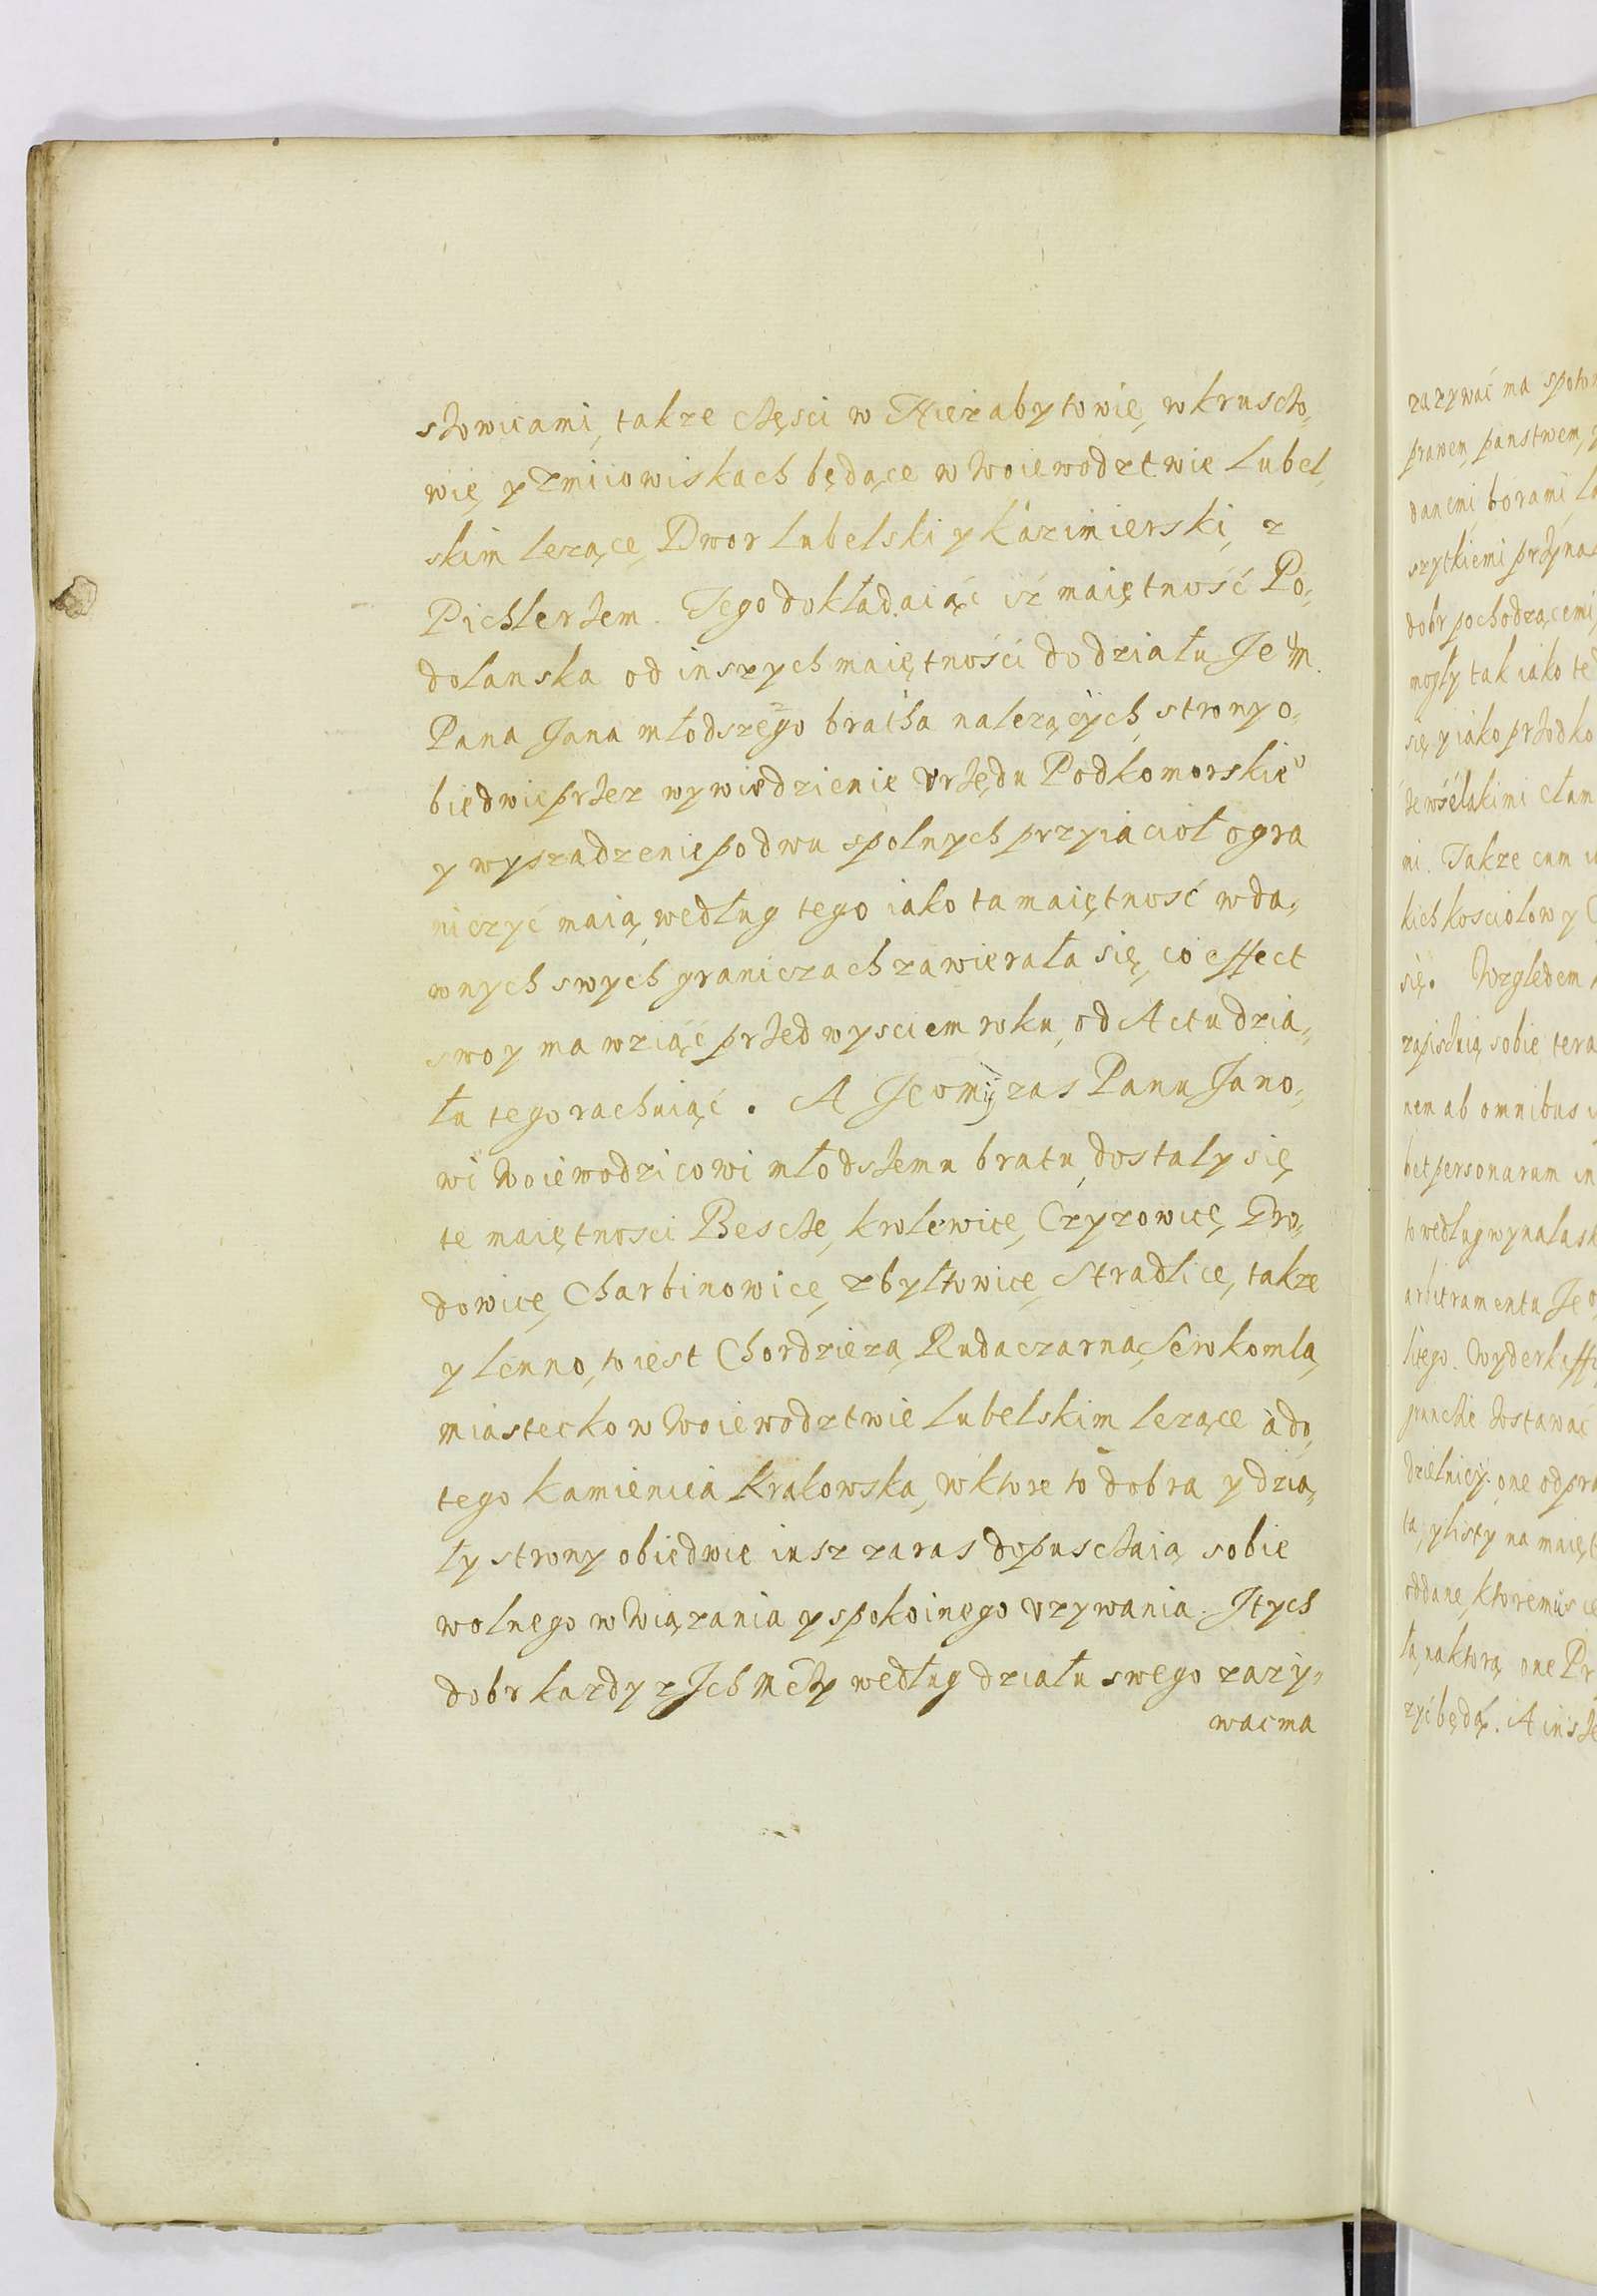 słowicami, takze częsci w Niezabytowie, w krusczo,
wie, y zmiiowiskach będące w Woiewodztwie Lubel,
skim lezące, Dwor Lubelski y kázimierski, z
Pichlerzem. Tego dokładaiąć iż maiętność Po,
dolanska od inszych maiętnośći do działu Je͞m.
Pana Jana młodszego bratha nalezących, strony o,
biedwie przez wywiedzienie Vrzędu Podkomorskie͞
y wysadzenie po dwu spolnych przyiaciół ogra
niczyć maią, według tego iako ta maiętność w da,
wnych swych graniczach zawierała się, co effect
swoy ma wziąć przed wysciem roku, od Actu dzia,
łu tego rachuiąć. A Jeom͞ zas Panu Jano,
wi Woiewodzicowi młodszemu bratu, dostały się
te maiętnosci Bescze, krolewice, Czyzowice, Gro,
dowice, Charbinowice, zbyltowice, Stradlice, takze
y lenno, to iest Chordzieza, Ruda czarna, Serokomla,
miastecko w Woiewodztwie Lubelskim lezące à do
tego kamienica krakowska, w ktore to dobra y dzia,
ły strony obiedwie iusz zaras dopusczaią sobie
wolnego w Wiązania y spokoinego vzywania. J tych
dobr kazdy z Jch Mczy według działu swego zazy,
wac ma
zazywać ma
prawem, panstwem,
danemi borami
szytkiemi
dobr pochodzącemi
mogły tak iako
się, y iako przodko
zewśelakimi
mi. Takze cum
kich kosciołow y
się. Względem
sobie tera
nem ab omnibus
bet personarum in
to według wynalask
arbitramentu Jeo
liego.
dostawać
dzielnicy. one odpra
ta, y listy na maięt
oddane, ktoremu
ła, na ktorą one Pr
zyć będą. A insze